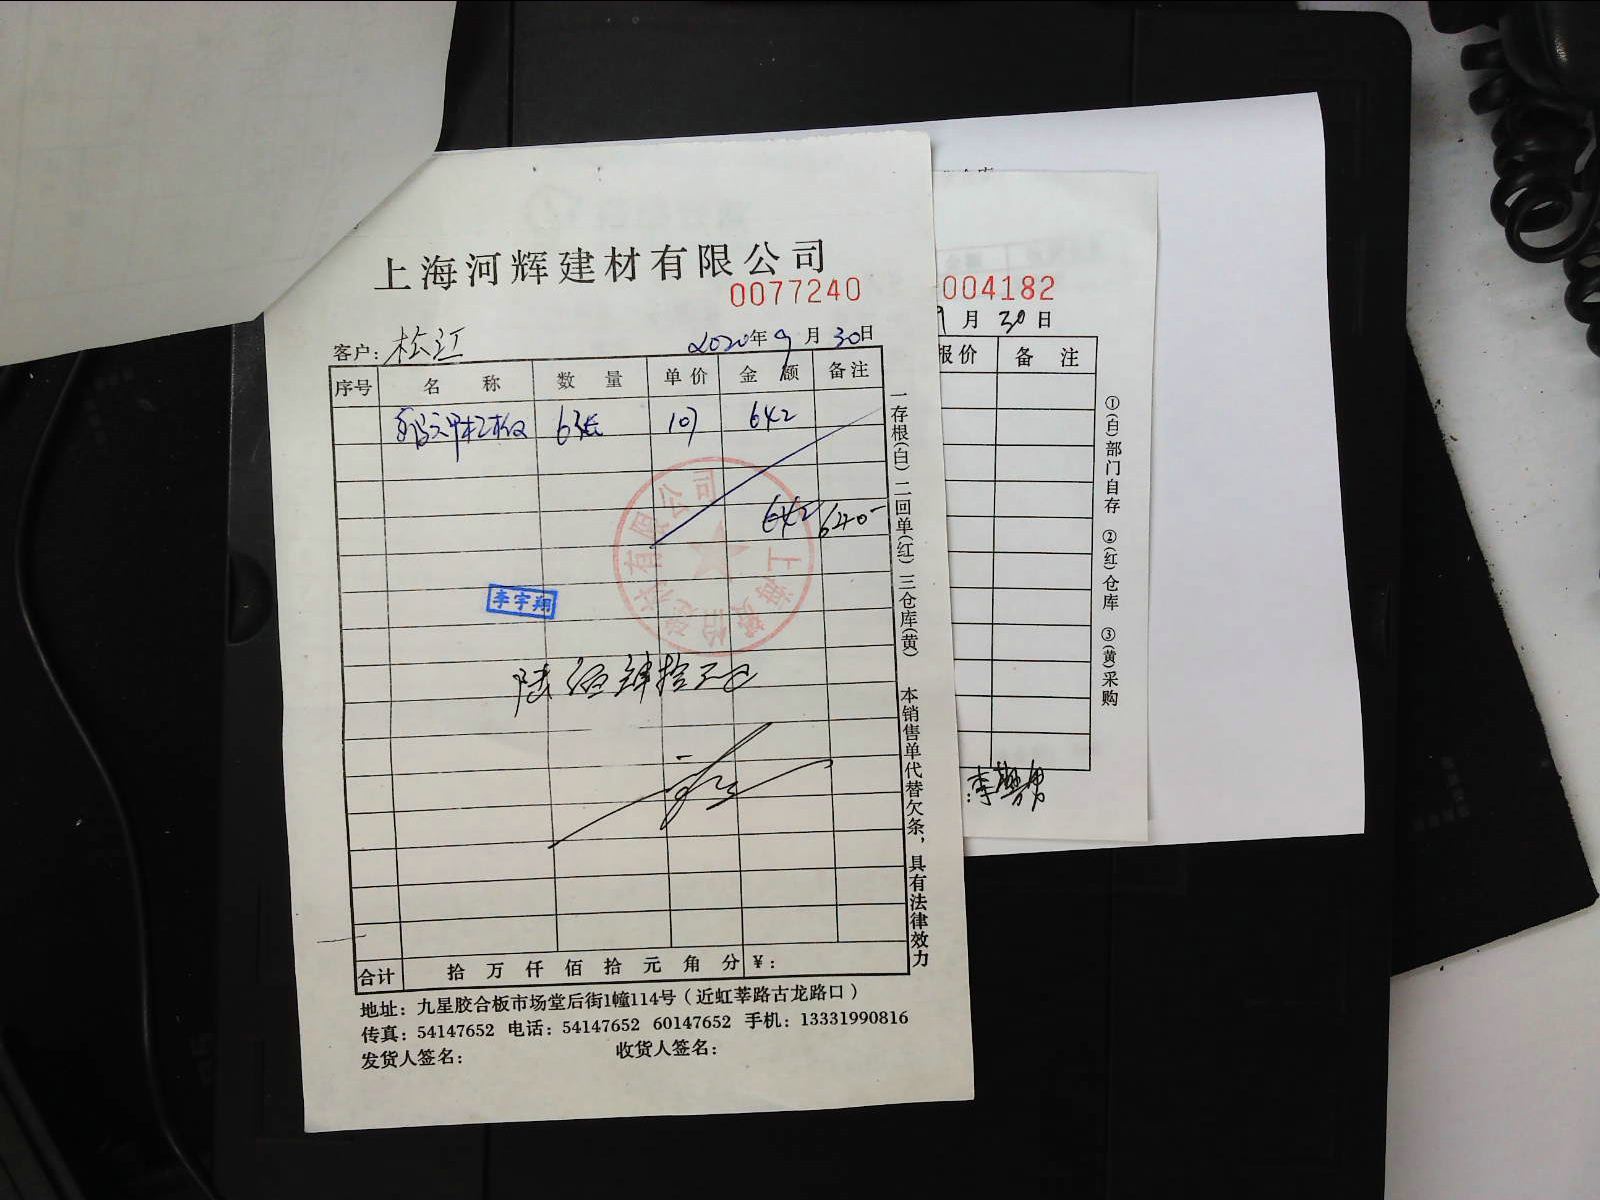 上海河辉建材有限公司
0077240
客户：松江
2020年9月30日
序号 名称 数量 单价 金额 备注
6张 107 642
642 640-
李宇翔
陆佰肆拾元正
合计 拾 万 仟 佰 拾 元 角 分 ¥：
地址：九星胶合板市场堂后街1幢114号（近虹莘路古龙路口）
传真：54147652 电话：54147652 60147652 手机：13331990816
发货人签名： 收货人签名：
一存根(白)二回单(红)三仓库(黄) 本销售单代替欠条，具有法律效力
004182
9月30日
报价 备注
①(白)部门自存 ②(红)仓库 ③(黄)采购